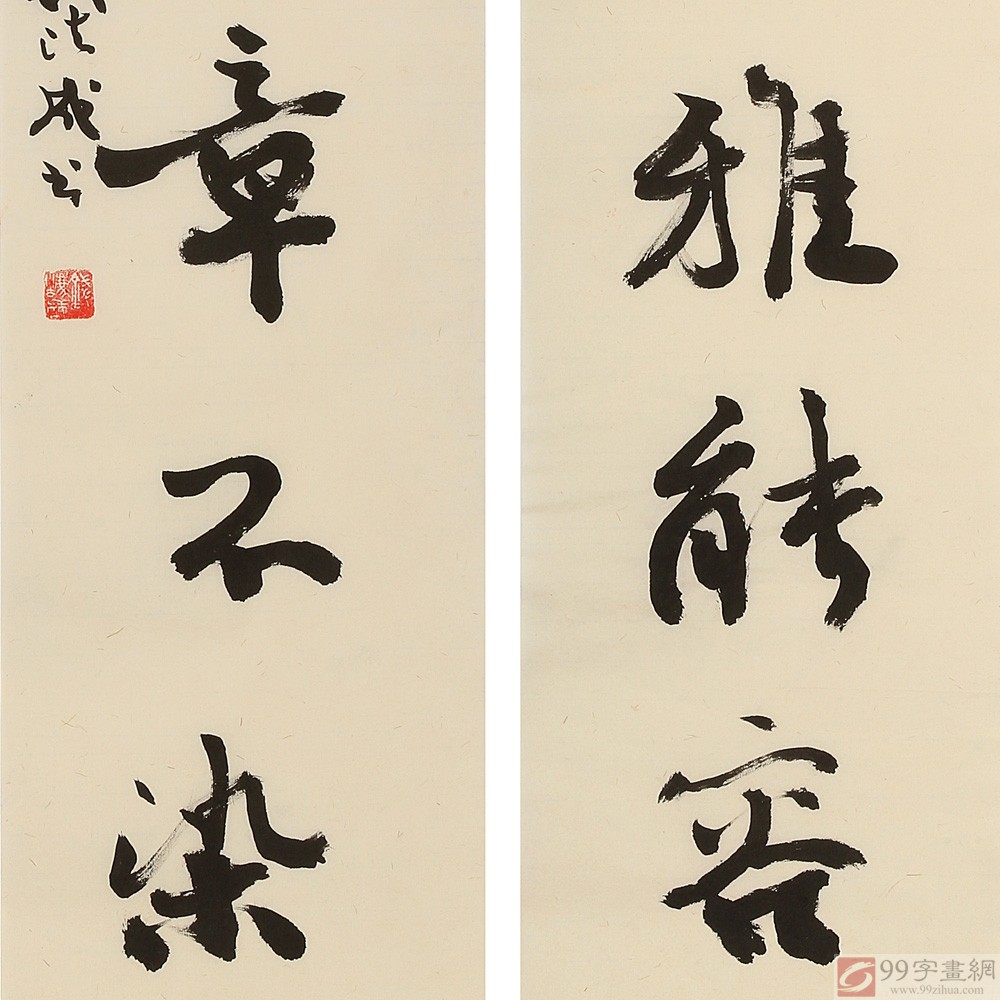 雅能容
章不染
法成书
99字畫網
www.99zihua.com